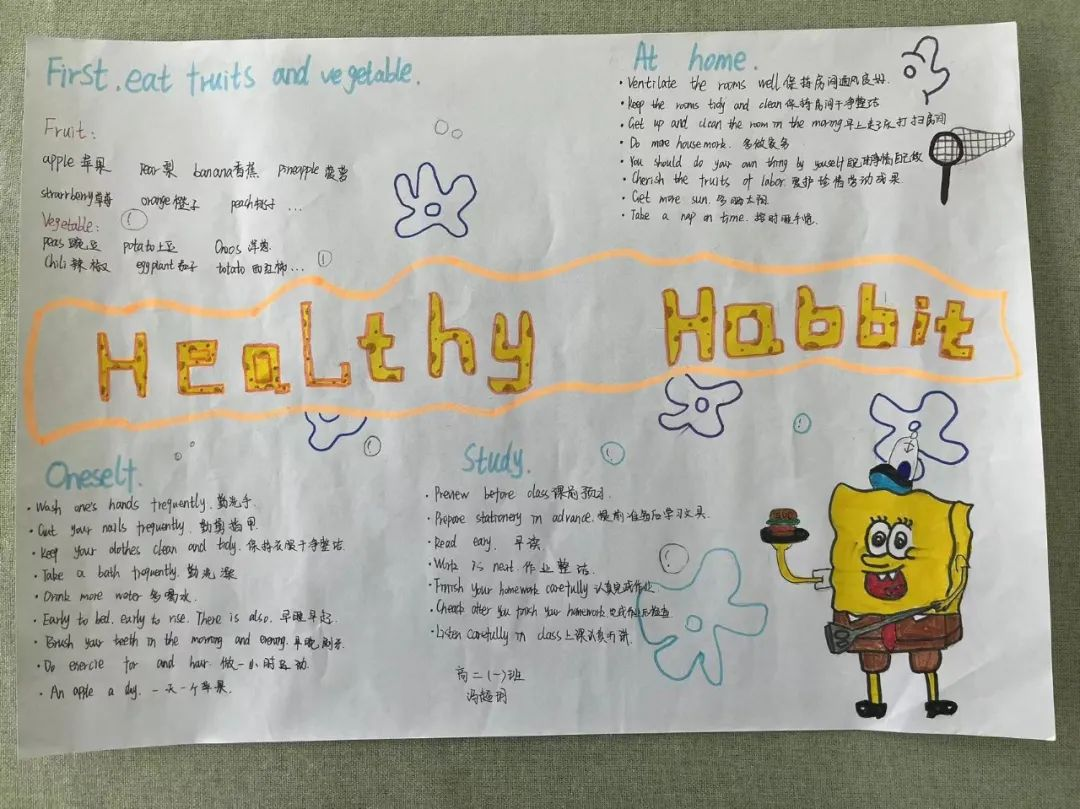 First, eat fruits and vegetable.
Fruit:
apple 苹果 Pear 梨 banana 香蕉 pineapple 菠萝
strarrberry 草莓 orange 橙子 peach 桃子 ...
Vegetable:
peas 豌豆 potato 土豆 Onoos 洋葱
Chili 辣椒 eggplant 茄子 totato 西红柿...
At home.
• Ventilate the rooms well 保持房间通风良好.
• Keep the rooms tidy and clean 保持房间干净整洁
• Get up and clean the room in the morning 早上起床打扫房间
• Do more housework. 多做家务
• You should do your own thing by youself 自己做
• Cherish the fruits of labor. 爱护珍惜劳动成果.
• Get more sun. 多晒太阳.
• Take a nap on time. 按时睡午觉.
HeaLthy Habbit
Oneself.
• Wash one's hands frequently. 勤洗手.
• Cut your nails frequently. 勤剪指甲
• Keep your clothes clean and tidy. 保持衣服干净整洁
• Take a bath frequently. 勤洗澡
• Drink more water 多喝水.
• Early to bed, early to rise. There is also. 早睡早起.
• Brush your teeth in the morning and evening. 早晚刷牙
• Do exercise for and hour. 做一小时运动.
• An apple a day. 一天一个苹果.
Study.
• Preview before class 课前预习.
• Prepare stationery in advance. 提前准备好学习文具.
• Read eary. 早读.
• Work is neat. 作业整洁.
• Finish your homework carefully 认真完成作业
• Check after you finish your homework 完成作业后检查
• Listen carefully in class 上课认真听讲.
高二(一)班